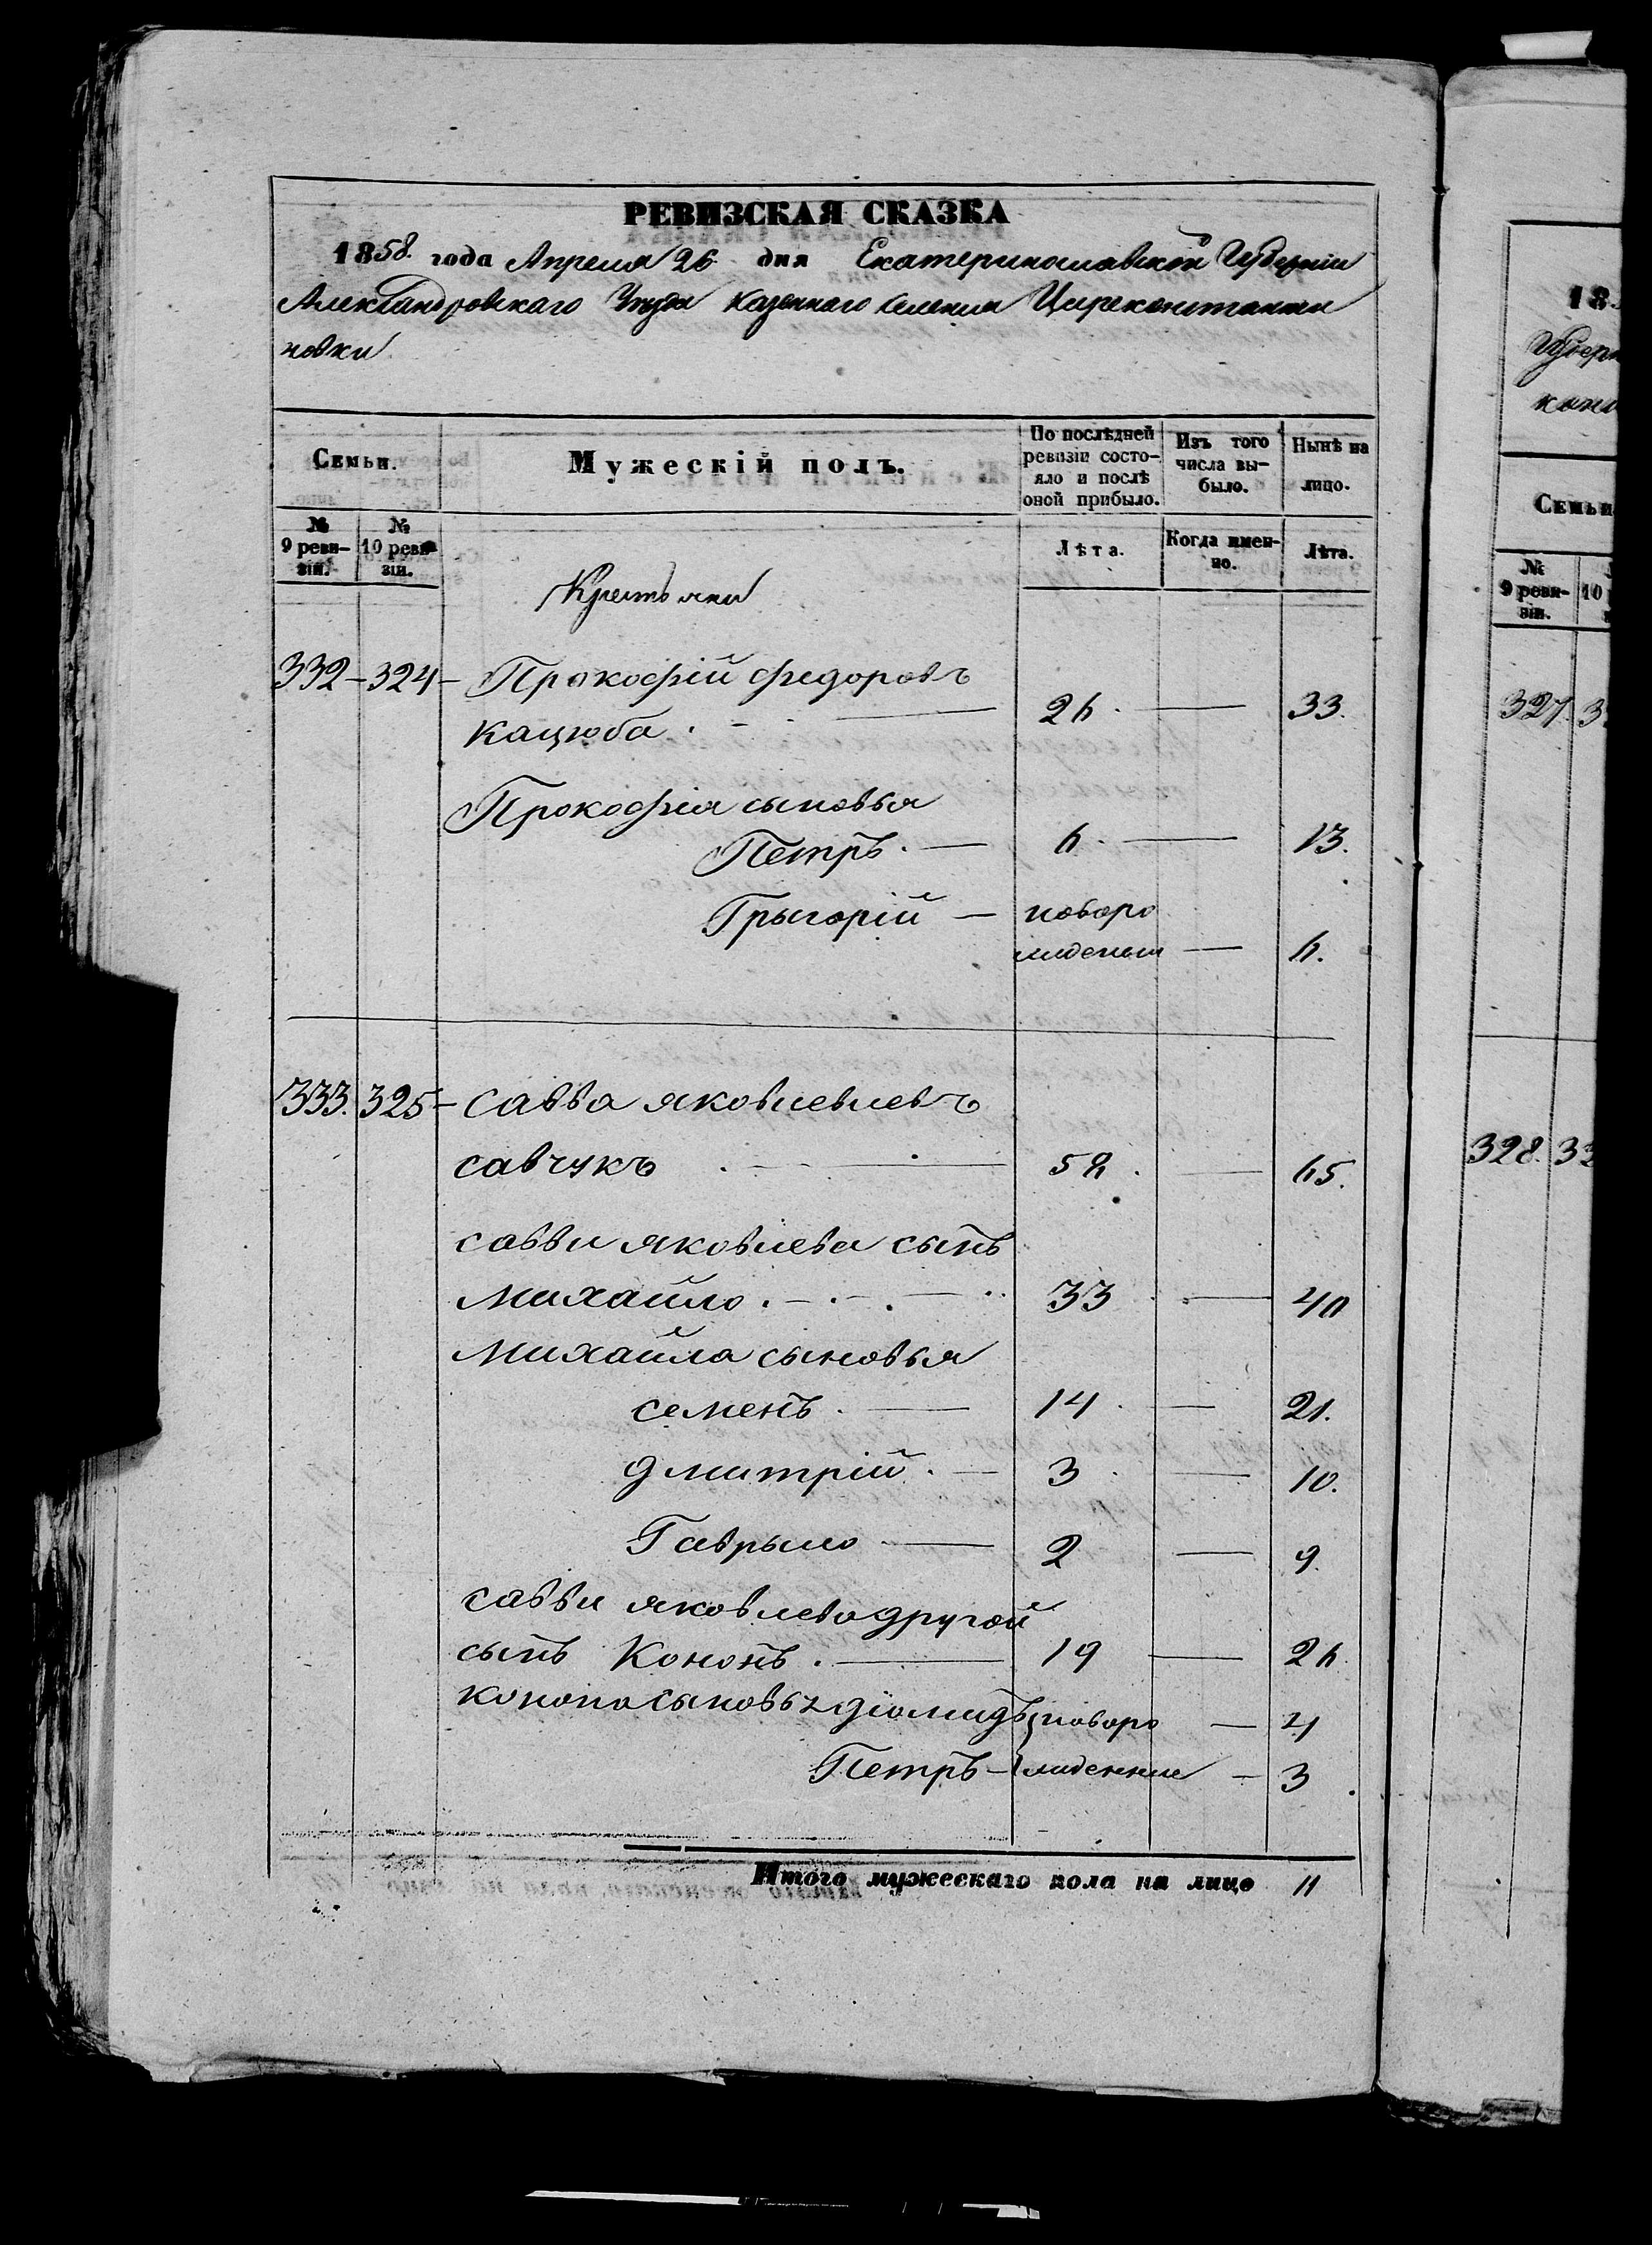 РЕВИЗСКАЯ СКАЗКА
1858. года Апреля 26 дня Екатеринославской Губерніи
Александровскаго Уезда казеннаго селения Цареконстанти
новки
Семьи.
Мужескій полъ.
По послѣдней ревизіи состо-яло и послѣ оной прибыло.
Изъ того числа вы-было.
Нынѣ на лицо.
№ 9 реви-зіи.
№ 10 реви-зіи.
Лѣта.
Когда имен-но.
Лѣта.
Крестьяни
332 – 324 – Прокофій Федоровъ
Кацюба . – 26 . — 33.
Прокофія сыновья
Петръ . — 6 . — 13.
Грыгорій — новоро
жденый — 6.
333. 325 – Савва яковлевлевъ
савчукъ . — 58 . — 65.
саввы яковлева сынъ
Михайло . – . – . — 33 . — 40
Михайла сыновья
семенъ . — 14 . — 21.
дмитрій . — 3 . — 10.
Гаврыло — 2 — 9.
саввы яковлева другой
сынъ Кононъ . — 19 — 26
конона сыновья діомидъ новоро — 4
Петръ – жденные – 3
Итого мужескаго пола на лицо 11
18
Губерн
конс
Семьи
№ 9 реви-зіи.
10
327. 3
328. 33